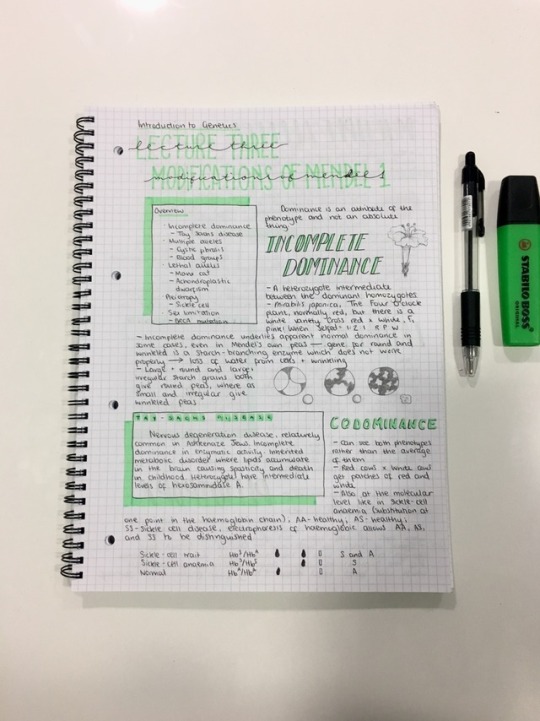 Introduction to Genetics
LECTURE THREE
lecture three
MODIFICATIONS OF MENDEL 1
modifications of mendel
Overview
Incomplete dominance
- Tay Sachs disease
Multiple alleles
- Cystic fibrosis
- Blood groups
Lethal alleles
- Manx cat
- Achondroplastic
dwarfism
Pleiotropy
- Sickle cell
Sex limitation
- BRCA mutation
Dominance is an attribute of the
phenotype and not an absolute
thing
INCOMPLETE
DOMINANCE
- A heterozygote intermediate
between the dominant homozygotes
- Mirabilis japonica, The Four O'clock
plant, normally red, but there is a
white variety. Cross red x white, F1
pink! When selfed 1:2:1 R P W
- Incomplete dominance underlies apparent normal dominance in
some cases, even in Mendel's own peas — gene for round and
wrinkled is a starch-branching enzyme which does not work
properly → loss of water from cells + wrinkling
- Large + round and large +
irregular starch grains both
give round peas, where as
small and irregular give
wrinkled peas
TAY-SACHS DISEASE
Nervous degeneration disease, relatively
common in Ashkenaze Jews. Incomplete
dominance in enzymatic activity. Inherited
metabolic disorder where lipids accumulate
in the brain causing spasticity and death
in childhood. Heterozygotes have intermediate
levels of hexosaminidase A.
CODOMINANCE
- Can see both phenotypes
rather than the average
of them
- Red cows x white and
get patches of red and
white
- Also at the molecular
level like in sickle-cell
anaemia (substitution at
one point in the haemoglobin chain), AA-healthy, AS-healthy,
SS-sickle cell disease, electrophoresis of haemoglobin allows AA, AS,
and SS to be distinguished
Sickle-cell trait Hbˢ/Hbᴬ S and A
Sickle-cell anaemia Hbˢ/Hbˢ S
Normal Hbᴬ/Hbᴬ A
STABILO BOSS
ORIGINAL